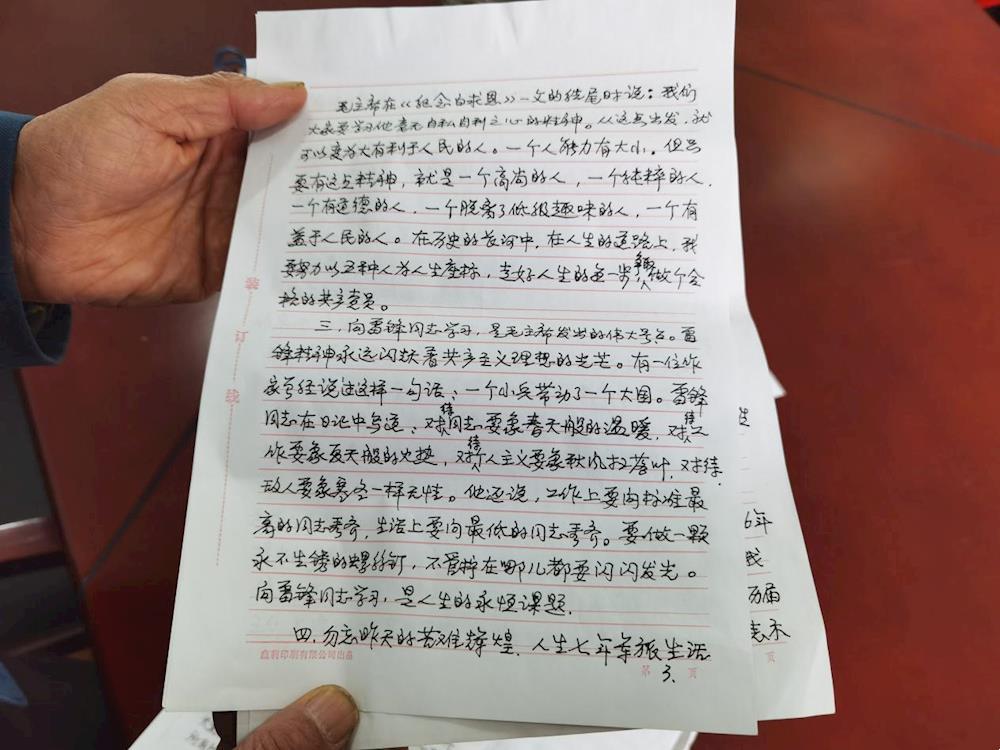 毛主席在《纪念白求恩》一文的结尾时说：我们
大家要学习他毫无自私自利之心的精神。从这点出发，就
可以变为大有利于人民的人。一个人能力有大小，但只
要有这点精神，就是一个高尚的人，一个纯粹的人，
一个有道德的人，一个脱离了低级趣味的人，一个有
益于人民的人。在历史的长河中，在人生的道路上，我
要努力以五种人为人生座标，走好人生的每一步，争取做个合
格的共产党员。
三、向雷锋同志学习，是毛主席发出的伟大号召。雷
锋精神永远闪烁着共产主义理想的光芒。有一位作
家曾经说过这样一句话、一个小兵带动了一个大国。雷锋
同志在日记中写道、对待同志要象春天般的温暖，对待工
作要象夏天般的火热，对待个人主义要象秋风扫落叶，对待
敌人要象寒冬一样无情。他还说，工作上要向标准最
高的同志看齐，生活上要向最低的同志看齐。要做一颗
永不生锈的螺丝钉，不管拧在哪儿都要闪闪发光。
向雷锋同志学习，是人生的永恒课题.
四、勿忘昨天的苦难辉煌，人生七年军旅生活
装订线
鑫利印刷有限公司出品
第3、页
6年
页